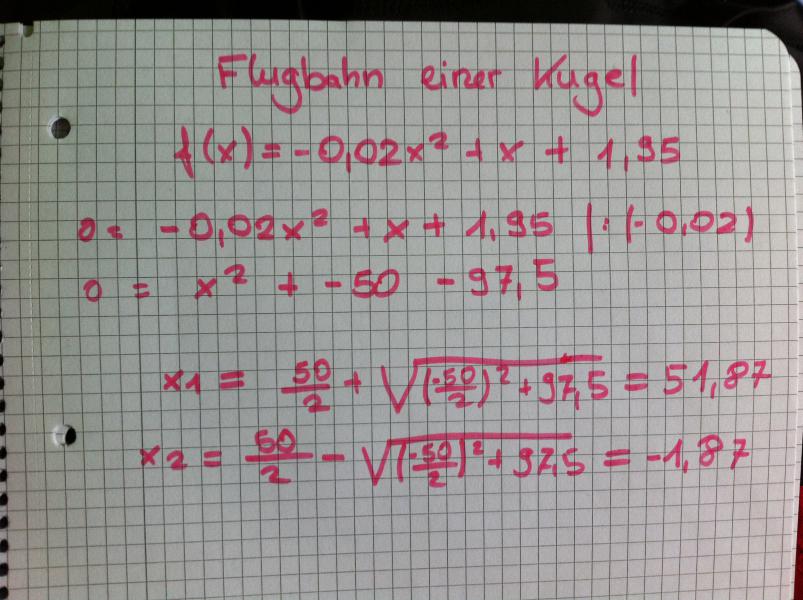 Flugbahn einer Kugel
f(x) = -0,02x² + x + 1,95
0 = -0,02x² + x + 1,95 | : (-0,02)
0 = x² + -50 - 97,5
x1 = 50/2 + √((-50/2)² + 97,5) = 51,87
x2 = 50/2 - √((-50/2)² + 97,5) = -1,87